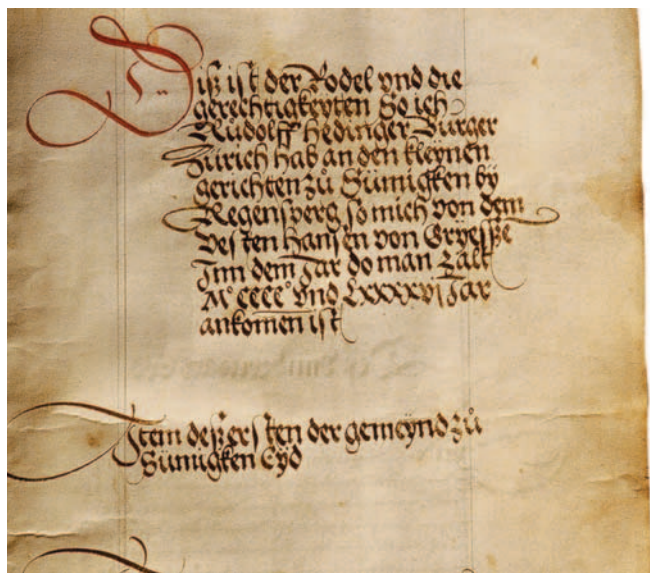 Diß ist der Rodel vnd die
gerechtigkeyten So ich
Rudolff hedinger Burger
Zürich hab an den kleynen
gerichten zů Sünigken by
Regensperg so mich von dem
Vesten Hansen von Gryesse
Inn dem Jar do man Zalt
Mº cccc º vnd Lxxxxvj Jar
ankomen ist
Item deß ersten der gemeynd zů
Sünigken Eyd